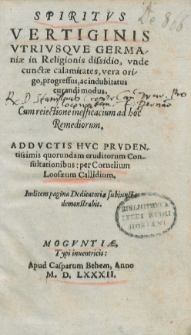 SPIRITVS
VERTIGINIS
VTRIVSQVE GERMA-
niæ in Religionis dissidio, vnde
cunctæ calamitates, vera ori-
go, progressus, ac indubitatus
curandi modus.
Cum reiectione inefficacium ad hoc
Remediorum.
ADDVCTIS HVC PRVDEN-
tissimis quorundam eruditorum Con-
sultationibus: per Cornelium
Loosæum Callidium.
Inditem pagina Dedicatoria subiuncta
demonstrabit.
MOGVNTIÆ,
Typi inuentricis:
Apud Casparum Behem, Anno
M. D. LXXXII.